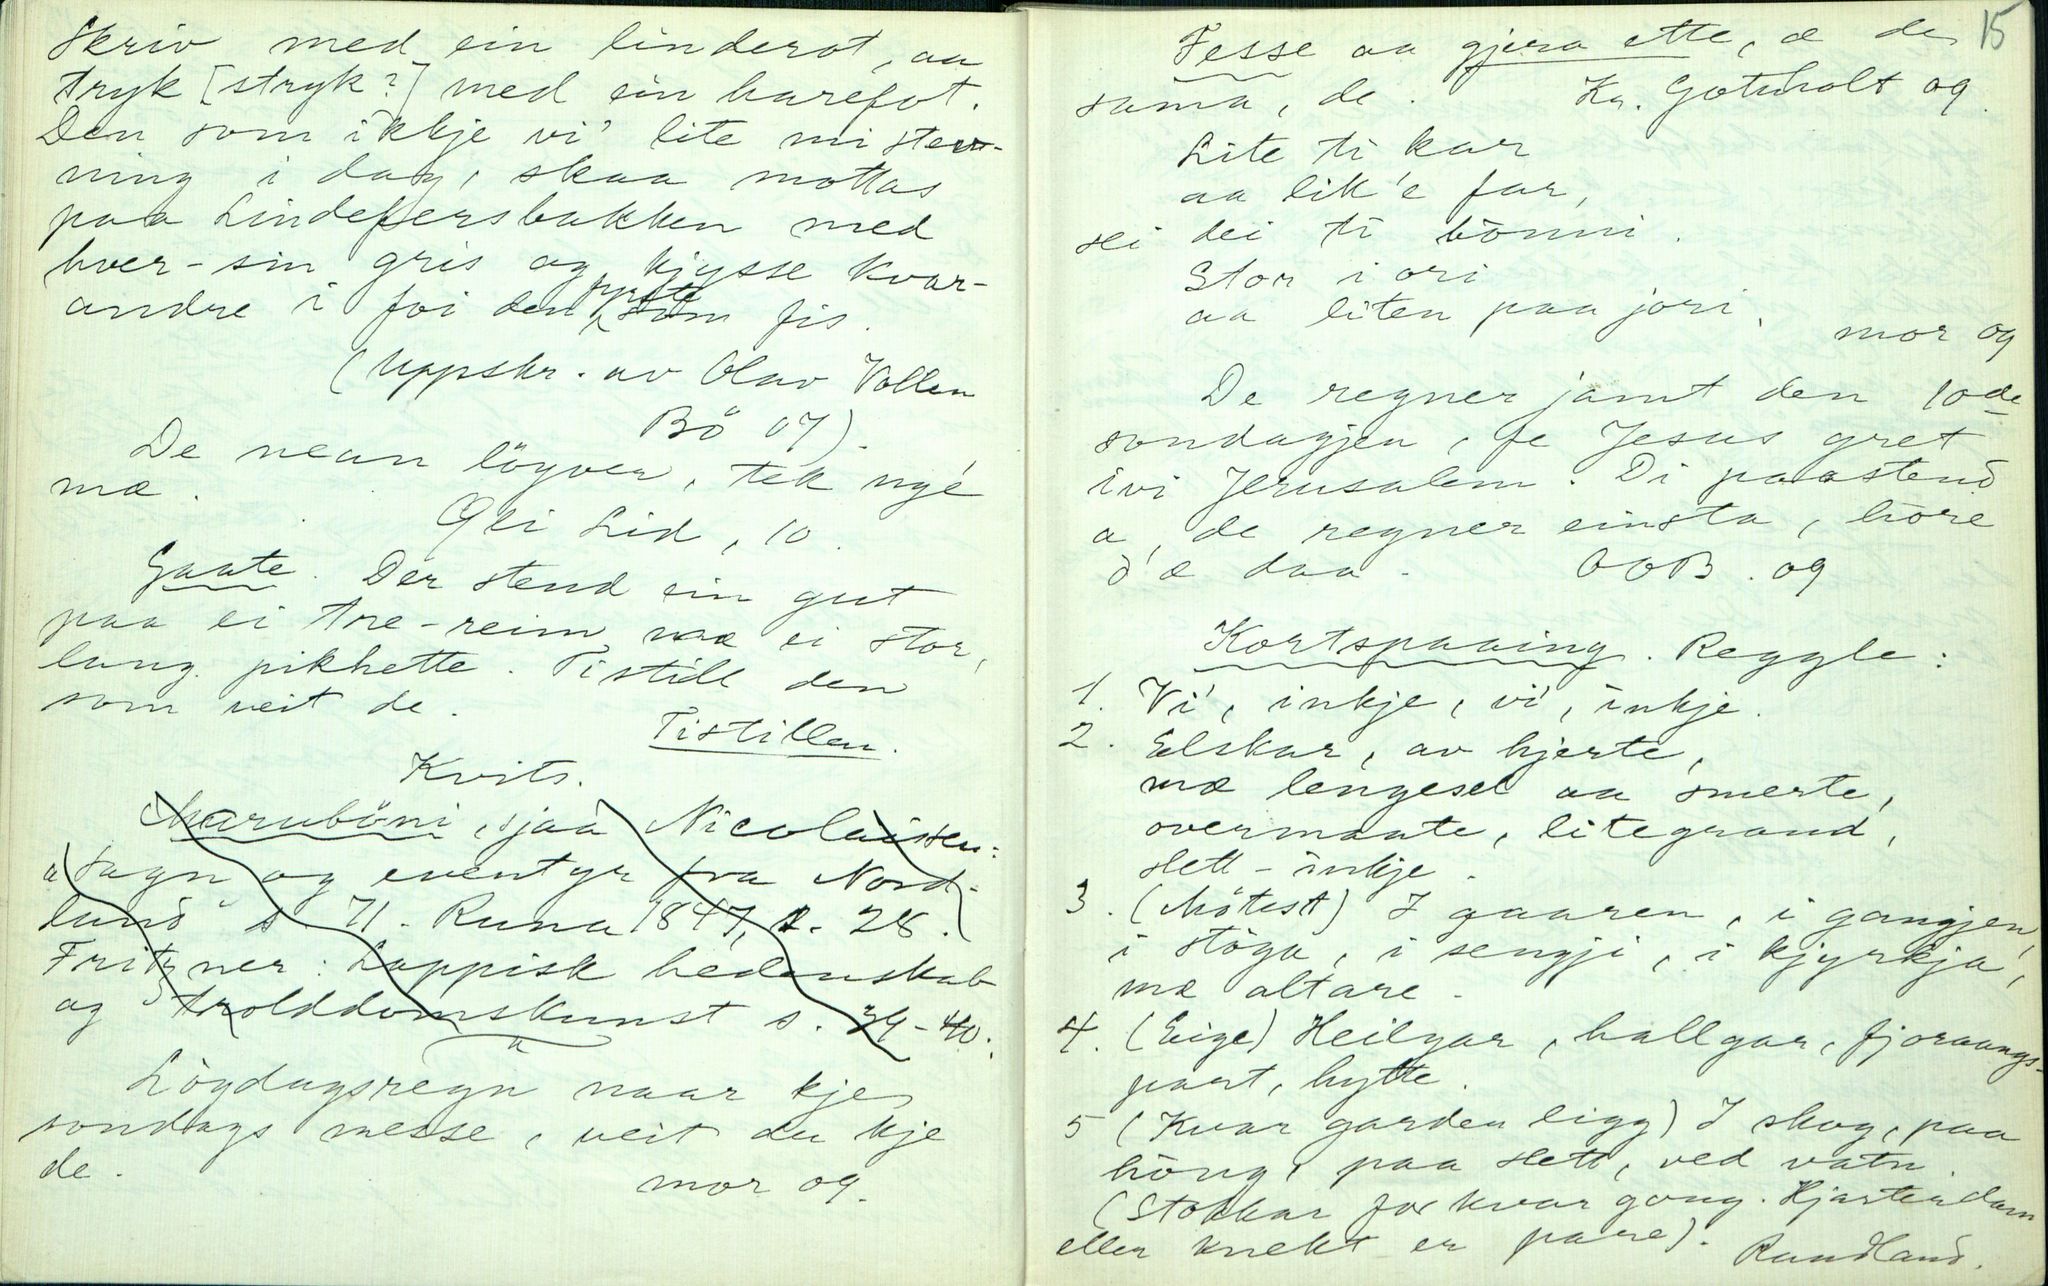 Skriv med ein linderot, aa
tryk [stryk?] med ein harefot.
Den som ikkje vi' lite mi stev-
ning i dag, skaa mottas
paa Lindefersbakken med
hver-sin gris og kjysse kvar-
andre i foi den fyste som fis.
(Uppskr. av Olav Vollen
Bö 07).
De nean löyver, tek nyé
mæ.
Gli Lid, 10.
Gaate. Der stend ein gut
paa ei tre-reim mæ ei stor,
lang pikhette. Tistill den
som veit de.
Tistillen.
Kvits.
Maruböni, sjaa Nicolaissen:
"Sagn og eventyr fra Nord-
land" s. 71. Runa 1847, s. 28.
Fritzner: Lappisk hedenskab
og trolddomskunst s. 39-40.
Lögdagsregn naar kje
sondags messe, veit du kje
de.
mor og.
15
Fesse aa gjera ette, æ de
sama, de.
Kr. Gotuholt og.
Lite ti kar
aa lik'e far,
sei dei ti bönni.
Stor i ori
aa liten paa jori.
mor og
De regner jamt den 10de
sondagjen, fe Jesus gret
ivi Jerusalem. Di paastend
a, de regner einsta, höre
ó'æ daa.
OOB. og
Kortspaaing. Reggle:
1. Vi', inkje, vi', inkje.
2. Elskar, av hjerte,
mæ lengesel aa smerte,
overmaate, litegrand,
slett-inkje.
3. (Mötest) I gaaren, i gangjen,
i stöga, i sengji, i kjyrkja,
mæ altare.
4. (Eige) Heilgar, hallgar, fjoraangs-
part, hytte.
5 (Kvar garden ligg) I skog, paa
höug, paa slett, ved vatn.
(Stokkar for kvar gong. Hjarterdam
eller knekt er paree).
Raudland.